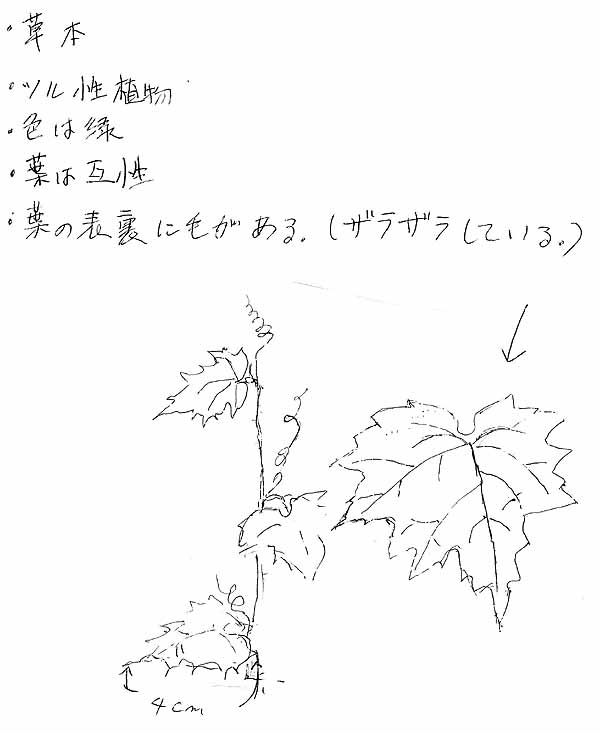 ・草本
・ツル性植物
・色は緑
・葉は互性
・葉の表裏に毛がある。(ザラザラしている。)
4cm